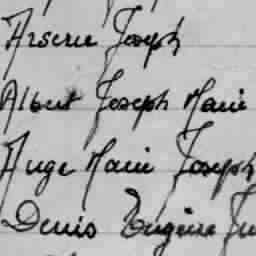 Arsene Joseph
Albert Joseph Marie
Ange Marie Joseph
Denis Eugène